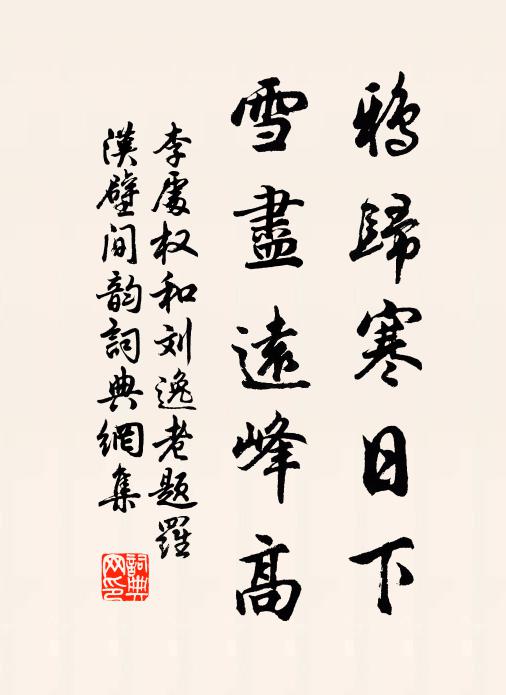 鴉歸寒日下
雪盡遠峰高
李處权和刘逸老题羅
漢壁间韵詞典網集
詞典
网印